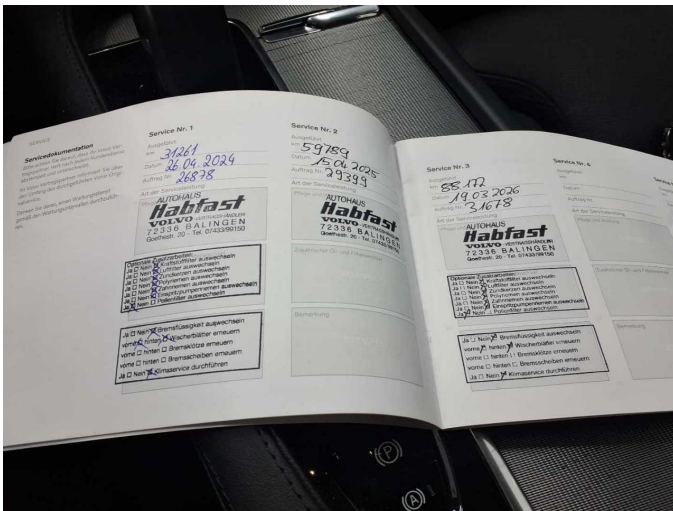 SERVICE
Servicedokumentation
Service Nr. 1
Ausgeführt
km 31261
Datum 26.04.2024
Auftrag Nr. 26878
Art der Serviceleistung
AUTOHAUS
Habfast
VOLVO-VERTRAGSHÄNDLER
72336 BALINGEN
Goethestr. 20 - Tel. 07433/99150
Optionale Zusatzarbeiten:
Ja □ Nein ☒ Kraftstofffilter auswechseln
Ja □ Nein ☒ Luftfilter auswechseln
Ja □ Nein ☒ Zündkerzen auswechseln
Ja □ Nein ☒ Polyriemen auswechseln
Ja □ Nein ☒ Zahnriemen auswechseln
Ja □ Nein ☒ Einspritzpumpenriemen auswechseln
Ja ☒ Nein □ Pollenfilter auswechseln
Ja □ Nein ☒ Bremsflüssigkeit auswechseln
vorne ☒ hinten ☒ Wischerblätter erneuern
vorne □ hinten □ Bremsklötze erneuern
vorne □ hinten □ Bremsscheiben erneuern
Ja □ Nein ☒ Klimaservice durchführen
Service Nr. 2
Ausgeführt
km 59789
Datum 15.04.2025
Auftrag Nr. 29399
Art der Serviceleistung
AUTOHAUS
Habfast
VOLVO-VERTRAGSHÄNDLER
72336 BALINGEN
Goethestr. 20 - Tel. 07433/99150
Zusätzlicher Öl- und Filterwechsel
Bemerkung
Service Nr. 3
Ausgeführt
km 88172
Datum 19.03.2026
Auftrag Nr. 31678
Art der Serviceleistung
AUTOHAUS
Habfast
VOLVO-VERTRAGSHÄNDLER
72336 BALINGEN
Goethestr. 20 - Tel. 07433/99150
Optionale Zusatzarbeiten:
Ja □ Nein ☒ Kraftstofffilter auswechseln
Ja □ Nein ☒ Luftfilter auswechseln
Ja □ Nein ☒ Zündkerzen auswechseln
Ja □ Nein ☒ Polyriemen auswechseln
Ja □ Nein ☒ Zahnriemen auswechseln
Ja □ Nein ☒ Einspritzpumpenriemen auswechseln
Ja ☒ Nein □ Pollenfilter auswechseln
Ja □ Nein ☒ Bremsflüssigkeit auswechseln
vorne ☒ hinten ☒ Wischerblätter erneuern
vorne □ hinten □ Bremsklötze erneuern
vorne □ hinten □ Bremsscheiben erneuern
Ja □ Nein ☒ Klimaservice durchführen
Service Nr. 4
Ausgeführt
km
Datum
Auftrag Nr.
Art der Serviceleistung
Zusätzlicher Öl- und Filterwechsel
Bemerkung
(P)
(A)